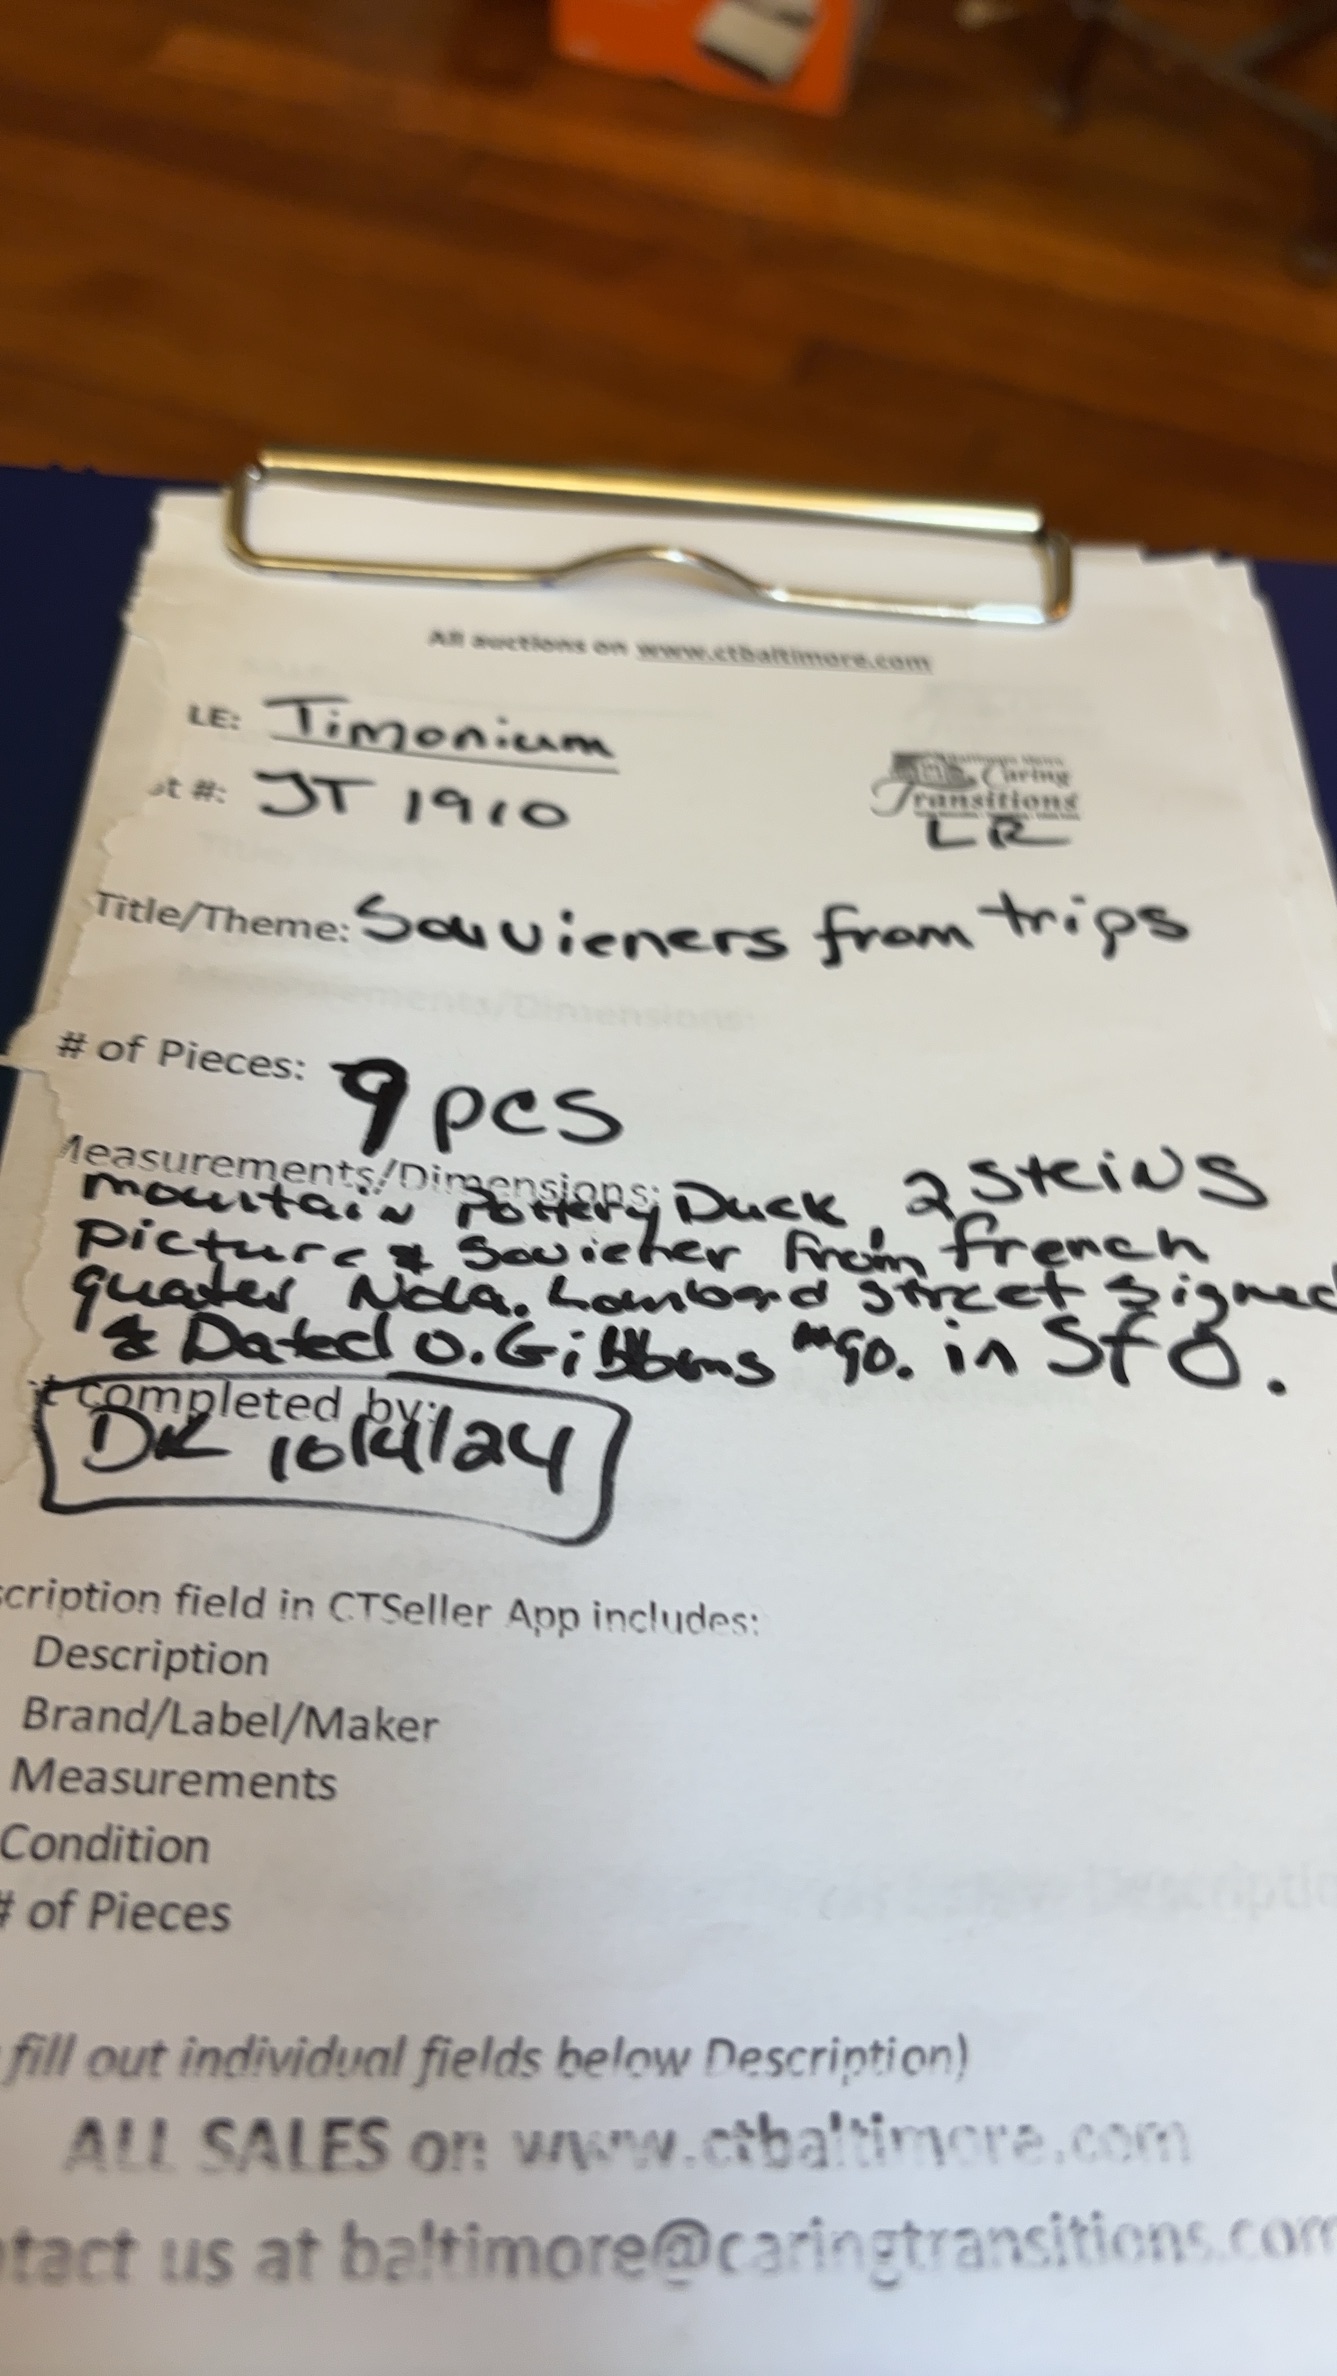 All auctions on www.ctbaltimore.com
LE: Timonium
ot #: JT 1910
Caring
Transitions
LR
Title/Theme: Souvieners from trips
# of Pieces: 9 pcs
Measurements/Dimensions:
mountain Pottery Duck, 2 Steins
Picture & Souviener from french
quater Nola. Lombard Street Signed
& Dated O. Gibbons 90. in SFO.
t completed by:
DK 10/4/24
scription field in CTSeller App includes:
Description
Brand/Label/Maker
Measurements
Condition
# of Pieces
fill out individual fields below Description)
ALL SALES on www.ctbaltimore.com
ntact us at baltimore@caringtransitions.com